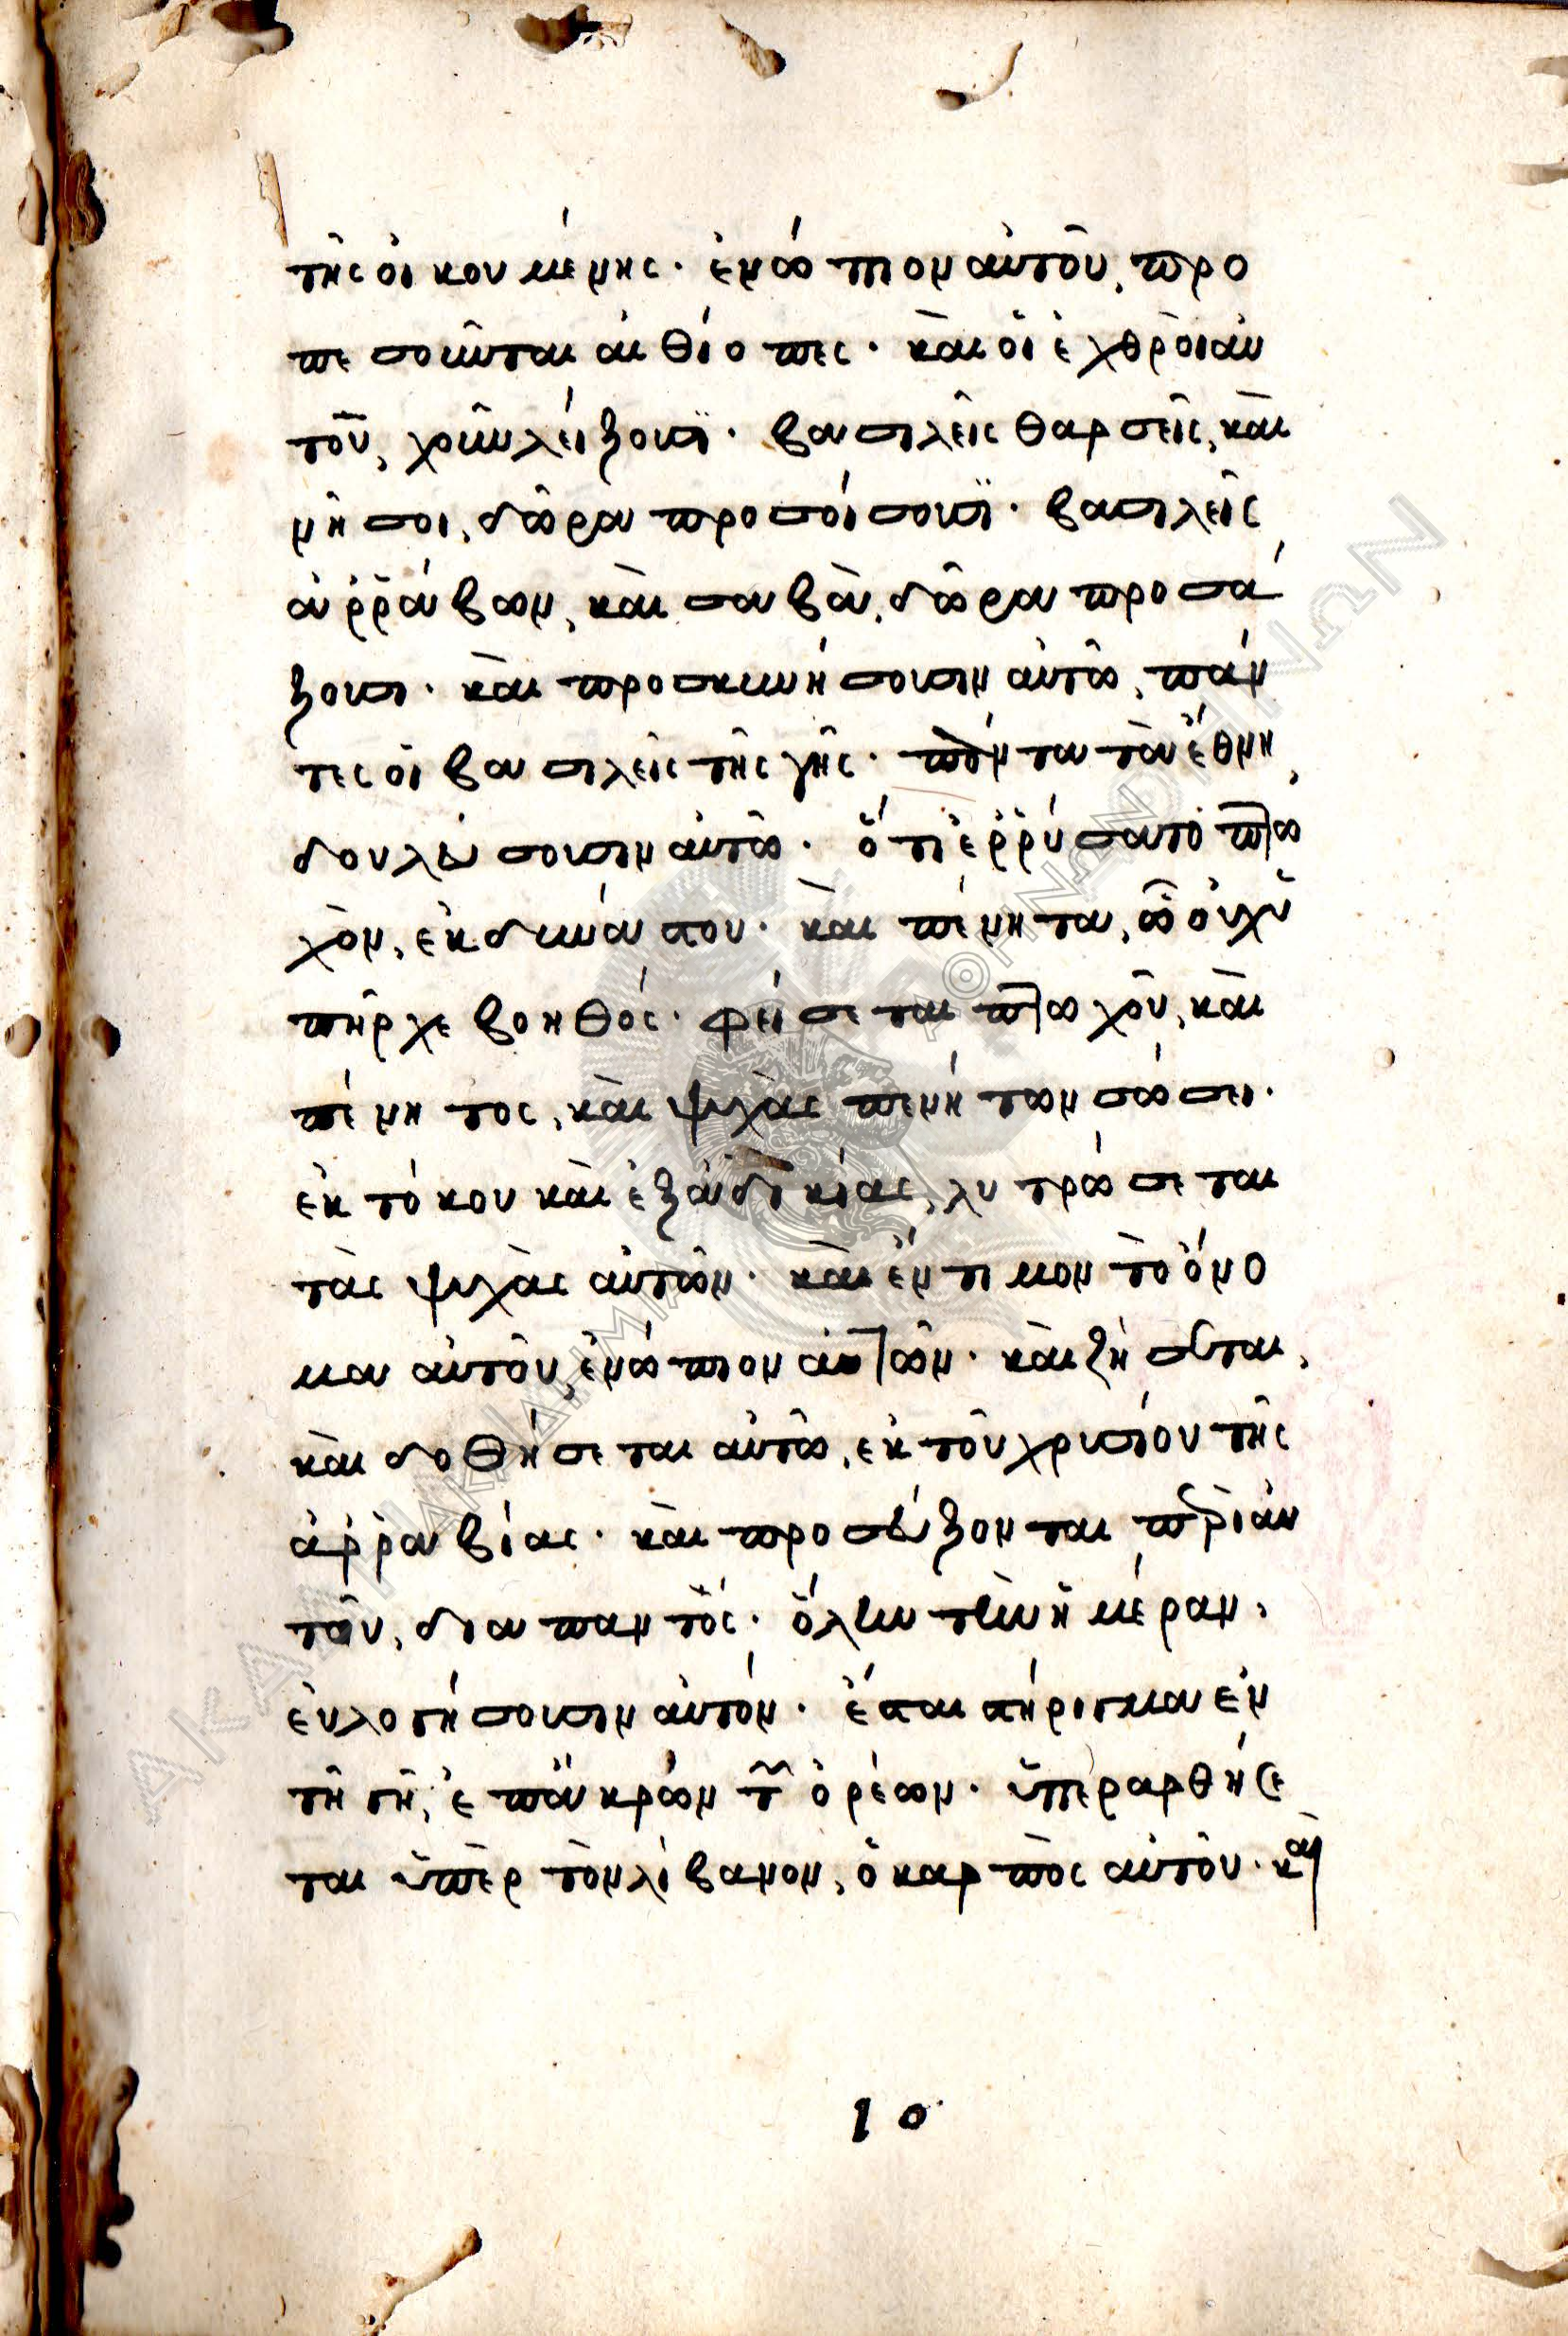 τῆς οἰκουμένης. ἐνώπιον αὐτοῦ, προ
πεσοῦνται αἰθίοπες. καὶ οἱ ἐχθροὶ αὐ
τοῦ, χοῦν λείξουσϊ. βασιλεῖς θαρσεῖς, καὶ
νῆσοι, δῶρα προσοίσουσϊ. βασιλεῖς
ἀρράβων, καὶ σαβὰ, δῶρα προσά
ξουσι. καὶ προσκυνήσουσιν αὐτῶ, πάν
τες οἱ βασιλεῖς τῆς γῆς. πάντα τὰ ἔθνη,
δουλεύσουσιν αὐτῶ. ὅτι ἐρρύσατο πτω
χὸν, ἐκ δυνάστου. καὶ πένητα, ὧ οὐχ ὑ
πῆρχε βοηθός. φείσεται πτωχοῦ, καὶ
πένητος, καὶ ψυχὰς πενήτων σώσει.
ἐκ τόκου καὶ ἐξ ἀδικίας, λυτρώσεται
τὰς ψυχὰς αὐτῶν. καὶ ἔντιμον τὸ ὄνο
μα αὐτοῦ, ἐνώπιον αὐτῶν. καὶ ζήσεται,
καὶ δοθήσεται αὐτῶ, ἐκ τοῦ χρυσίου τῆς
ἀρραβίας. καὶ προσεύξονται περὶ αὐ
τοῦ, διαπαντός. ὅλην τὴν ἡμέραν,
εὐλογήσουσιν αὐτόν. ἔσται στήριγμα ἐν
τῆ γῆ, ἐπ' ἄκρων τ͂ ὀρέων. ὑπεραρθήσε
ται ὑπὲρ τὸν λίβανον, ὁ καρπὸς αὐτοῦ. καὶ
10
ΑΚΑΔΗΜΙΑ ΑΘΗΝΩΝ
ΑΚΑΔΗΜΙΑ ΑΘΗΝΩΝ